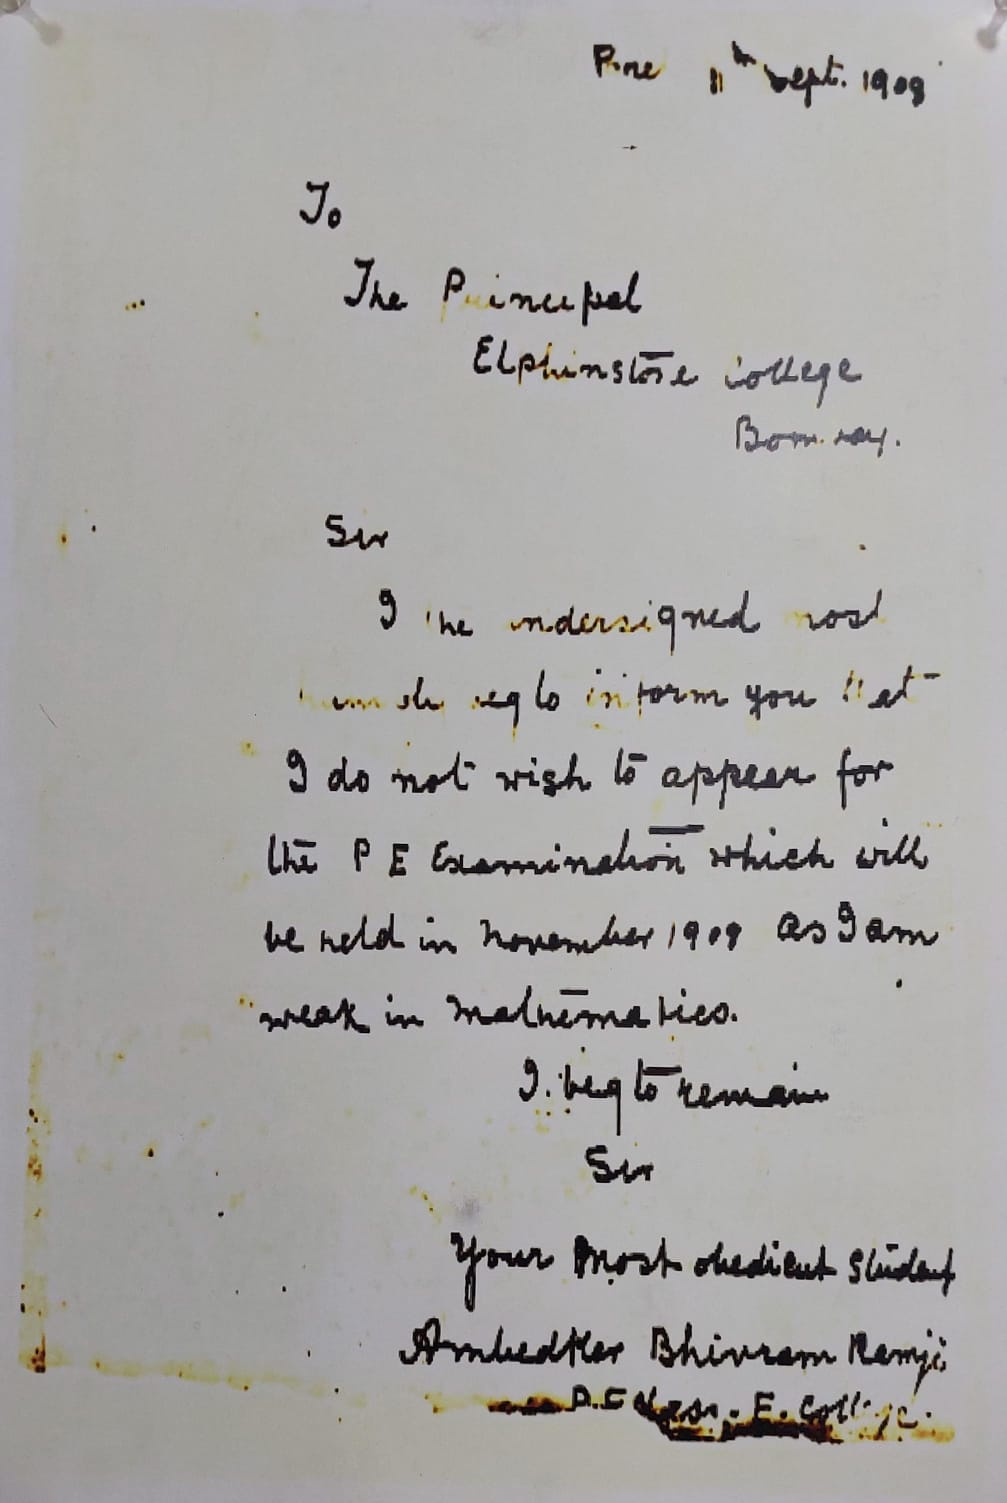 11th Sept. 1908
To
The Principal
Elphinstone College
Bombay.
Sir
I the undersigned most
humbly beg to inform you that
I do not wish to appear for
the P E Examination which will
be held in November 1908 as I am
weak in Mathematics.
I beg to remain
Sir
Your Most obedient student
Ambedkar Bhivram Ramji
P.E. Class. E. College.